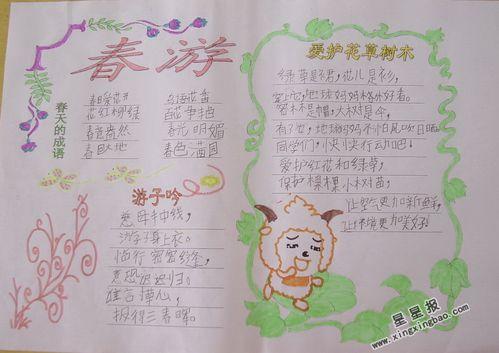 春游
春天的成语
春暖花开
花红柳绿
春意盎然
春回大地
鸟语花香
百花争艳
春光明媚
春色满园
游子吟
慈母手中线，
游子身上衣。
临行密密缝，
意恐迟迟归。
谁言寸草心，
报得三春晖。
爱护花草树木
绿草是裙，花儿是衫，
穿上它，地球妈妈格外好看。
密林是帽，小树是伞，
有了它，地球妈妈不怕风吹日晒。
同学们，快快行动吧！
爱护红花和绿草，
保护棵棵小树苗，
让空气更加新鲜，
让环境更加美好！
星星报
www.xingxingbao.com